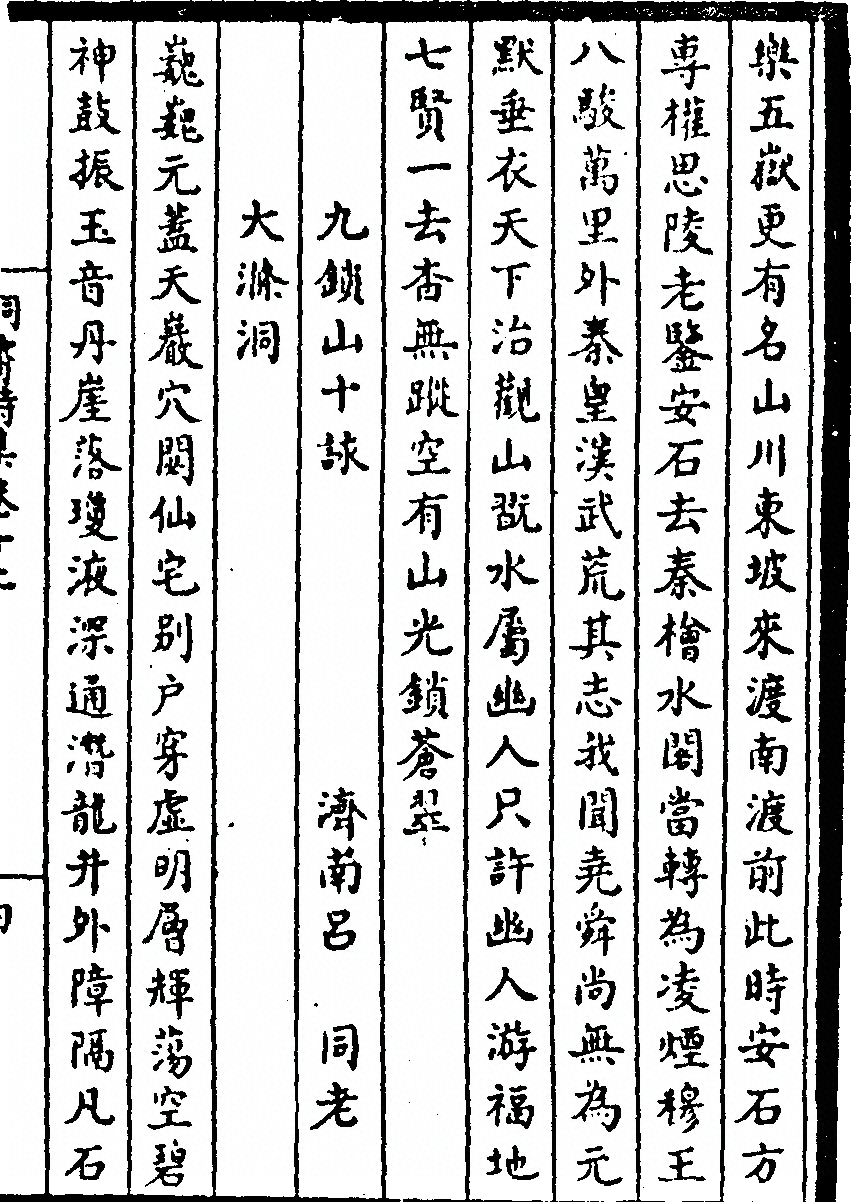 樂五嶽更有名山川東坡來渡南渡前此時安石方
專權思陵老鑒安石去秦檜水閣當轉為凌煙穆王
八駿萬里外秦皇漢武荒其志我聞堯舜尚無為元
默垂衣天下治觀山翫水屬幽人只許幽人游福地
七賢一去杳無蹤空有山光鎖蒼翠
九鎖山十詠　濟南呂　同老
大滌洞
巍巍元蓋天巖穴閟仙宅別户穿虛明層輝蕩空碧
神鼓振玉音丹崖落瓊液深通潛龍井外障隔凡石
洞霄詩集卷十